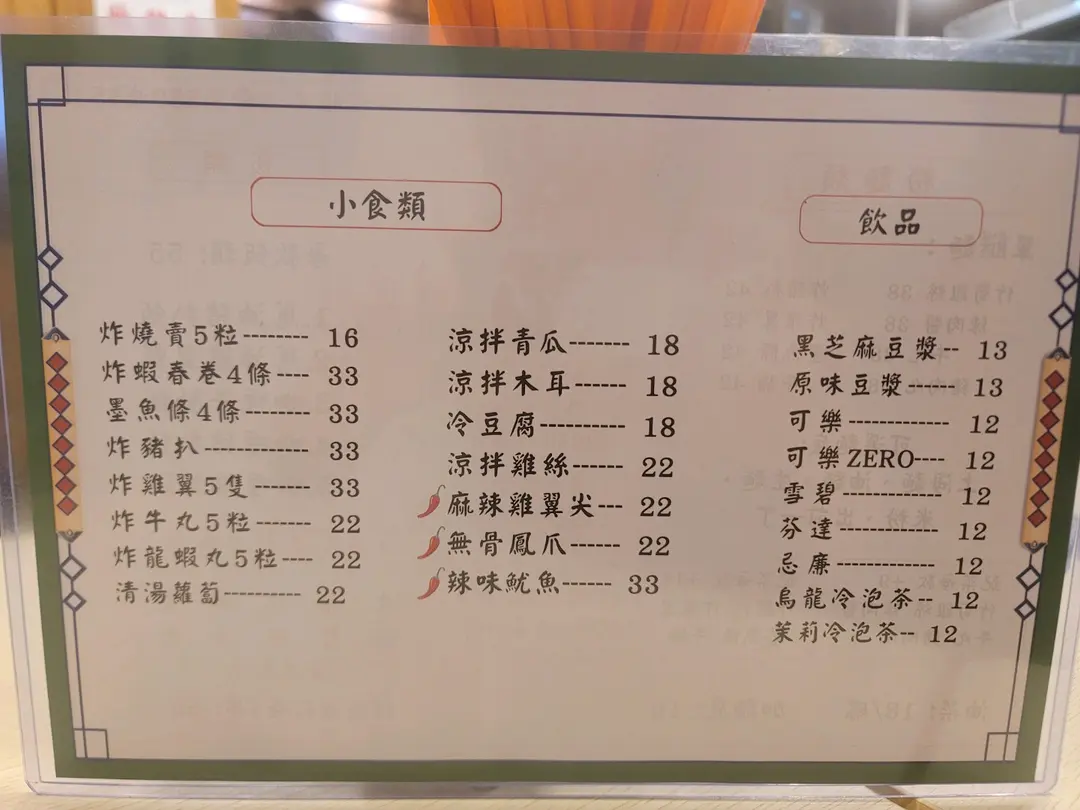 小食類
炸燒賣5粒-------- 16
炸蝦春卷4條---- 33
墨魚條4條-------- 33
炸豬扒------------- 33
炸雞翼5隻-------- 33
炸牛丸5粒------- 22
炸龍蝦丸5粒---- 22
清湯蘿蔔---------- 22
涼拌青瓜------- 18
涼拌木耳------ 18
冷豆腐---------- 18
涼拌雞絲------ 22
麻辣雞翼尖--- 22
無骨鳳爪------ 22
辣味魷魚------ 33
飲品
黑芝麻豆漿-- 13
原味豆漿------- 13
可樂------------ 12
可樂ZERO---- 12
雪碧------------ 12
芬達------------ 12
忌廉------------ 12
烏龍冷泡茶-- 12
茉莉冷泡茶-- 12